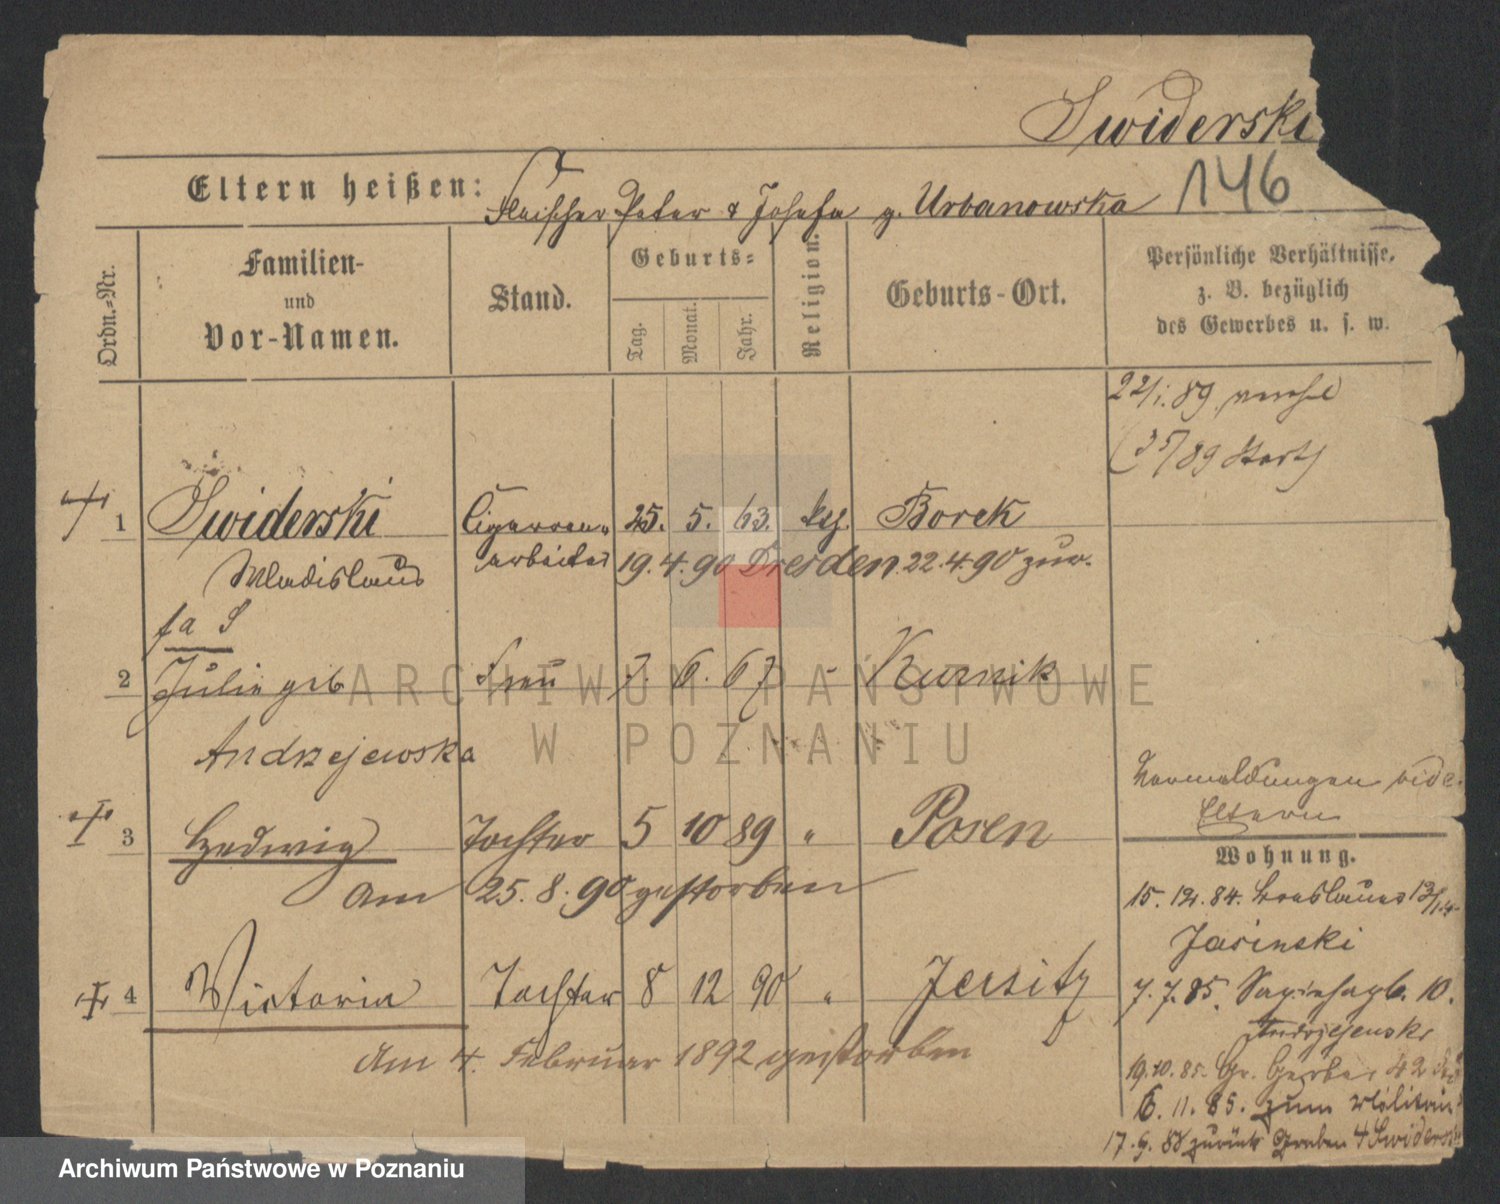 Swiderski
146
Eltern heißen: Fleischer Peter & Josefa g. Urbanowska
Ordn.-Nr.
Familien- und Vor-Namen.
Stand.
Geburts-
Tag.
Monat.
Jahr.
Religion.
Geburts-Ort.
Persönliche Verhältnisse,
z. B. bezüglich
des Gewerbes u. s. w.
22/1. 89
1 Swiderski Cigarren- 25. 5. 63. Borek
Wladislaus arbeiter 19. 4. 90 Dresden 22. 4. 90 zur.
fa S
2 Julie geb Frau 7. 6. 67 Kurnik
Andrzejewska
3 Hedwig Tochter 5 10 89 " Posen
am 25. 8. 90 gestorben
4 Victoria Tochter 8 12 90 " Jersitz
Am 4. Februar 1892 gestorben
Vermeldungen vide
Eltern
Wohnung.
15. 12. 84. Breslauer
Jasinski
7. 7. 85. 10.
Andrzejewski
19. 10. 85. Gr. Gerber 42
6. 11. 85. zum Militair
17. 9. 88 zurück Graben 4 Swiderski
ARCHIWUM PAŃSTWOWE
W POZNANIU
Archiwum Państwowe w Poznaniu